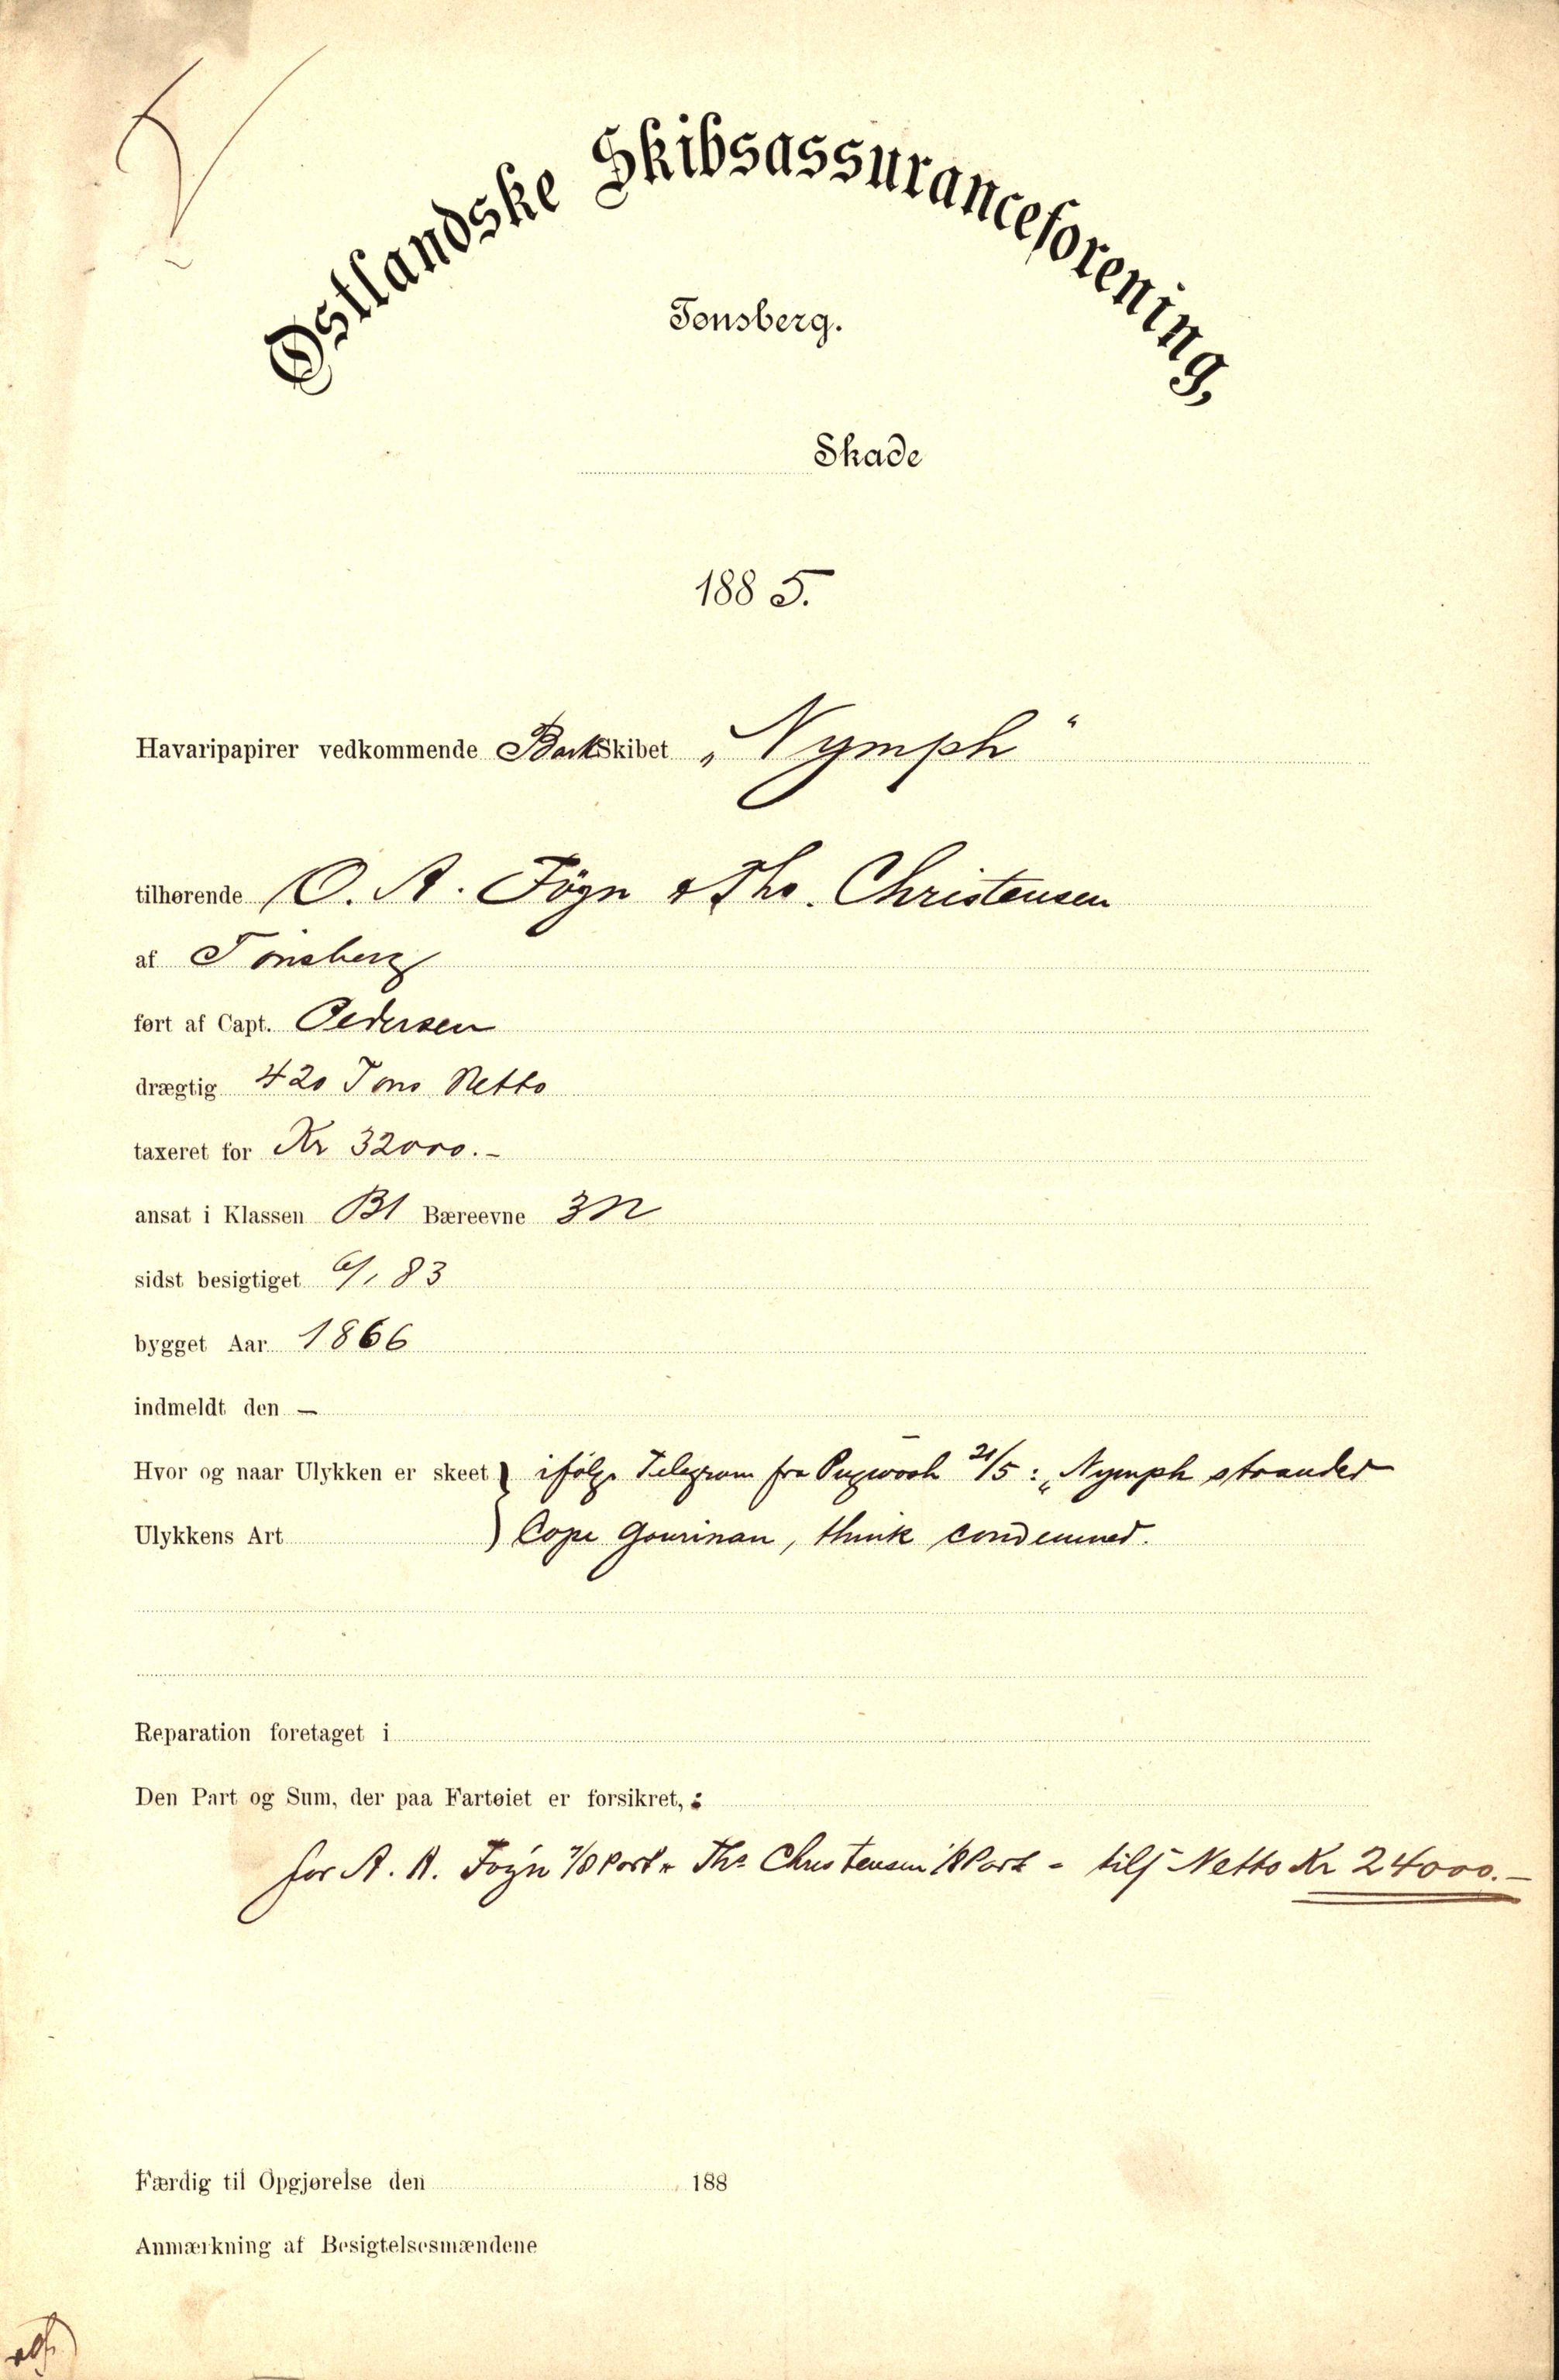 Østlandske Skibsassuranceforening,
Tønsberg.
Skade
1885.
Havaripapirer vedkommende Bark Skibet „Nymph“
tilhørende O. A. Föyn & Ths. Christensen
af Tönsberg
ført af Capt. Pedersen
drægtig 420 Tons Netto
taxeret for Kr 32000.-
ansat i Klassen B1 Bæreevne 3N
sidst besigtiget 83
bygget Aar 1866
indmeldt den —
Hvor og naar Ulykken er skeet } ifölge Telegram fra Pugwosh 21/5: „Nymph strander
Ulykkens Art } Cope Gourinan, think condemned.
Reparation foretaget i
Den Part og Sum, der paa Fartøiet er forsikret, :
for A. A. Foyn 7/8 Part & Ths Christensen 1/8 Part - tils Netto Kr 24000.-
Færdig til Opgjørelse den 188
Anmærkning af Besigtelsesmændene